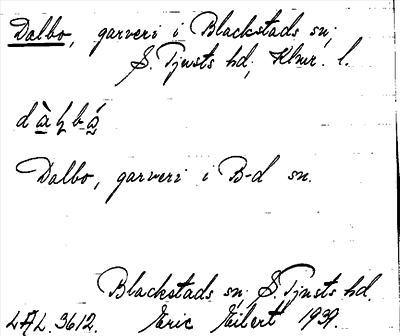 Dalbo, garveri i Blackstads sn;
S. Tjusts hd; Klmr. l.
dàḷbá
Dalbo, garveri i B-d sn.
Blackstads sn, S. Tjusts hd.
LAL. 3612. Eric Eilert 1939.